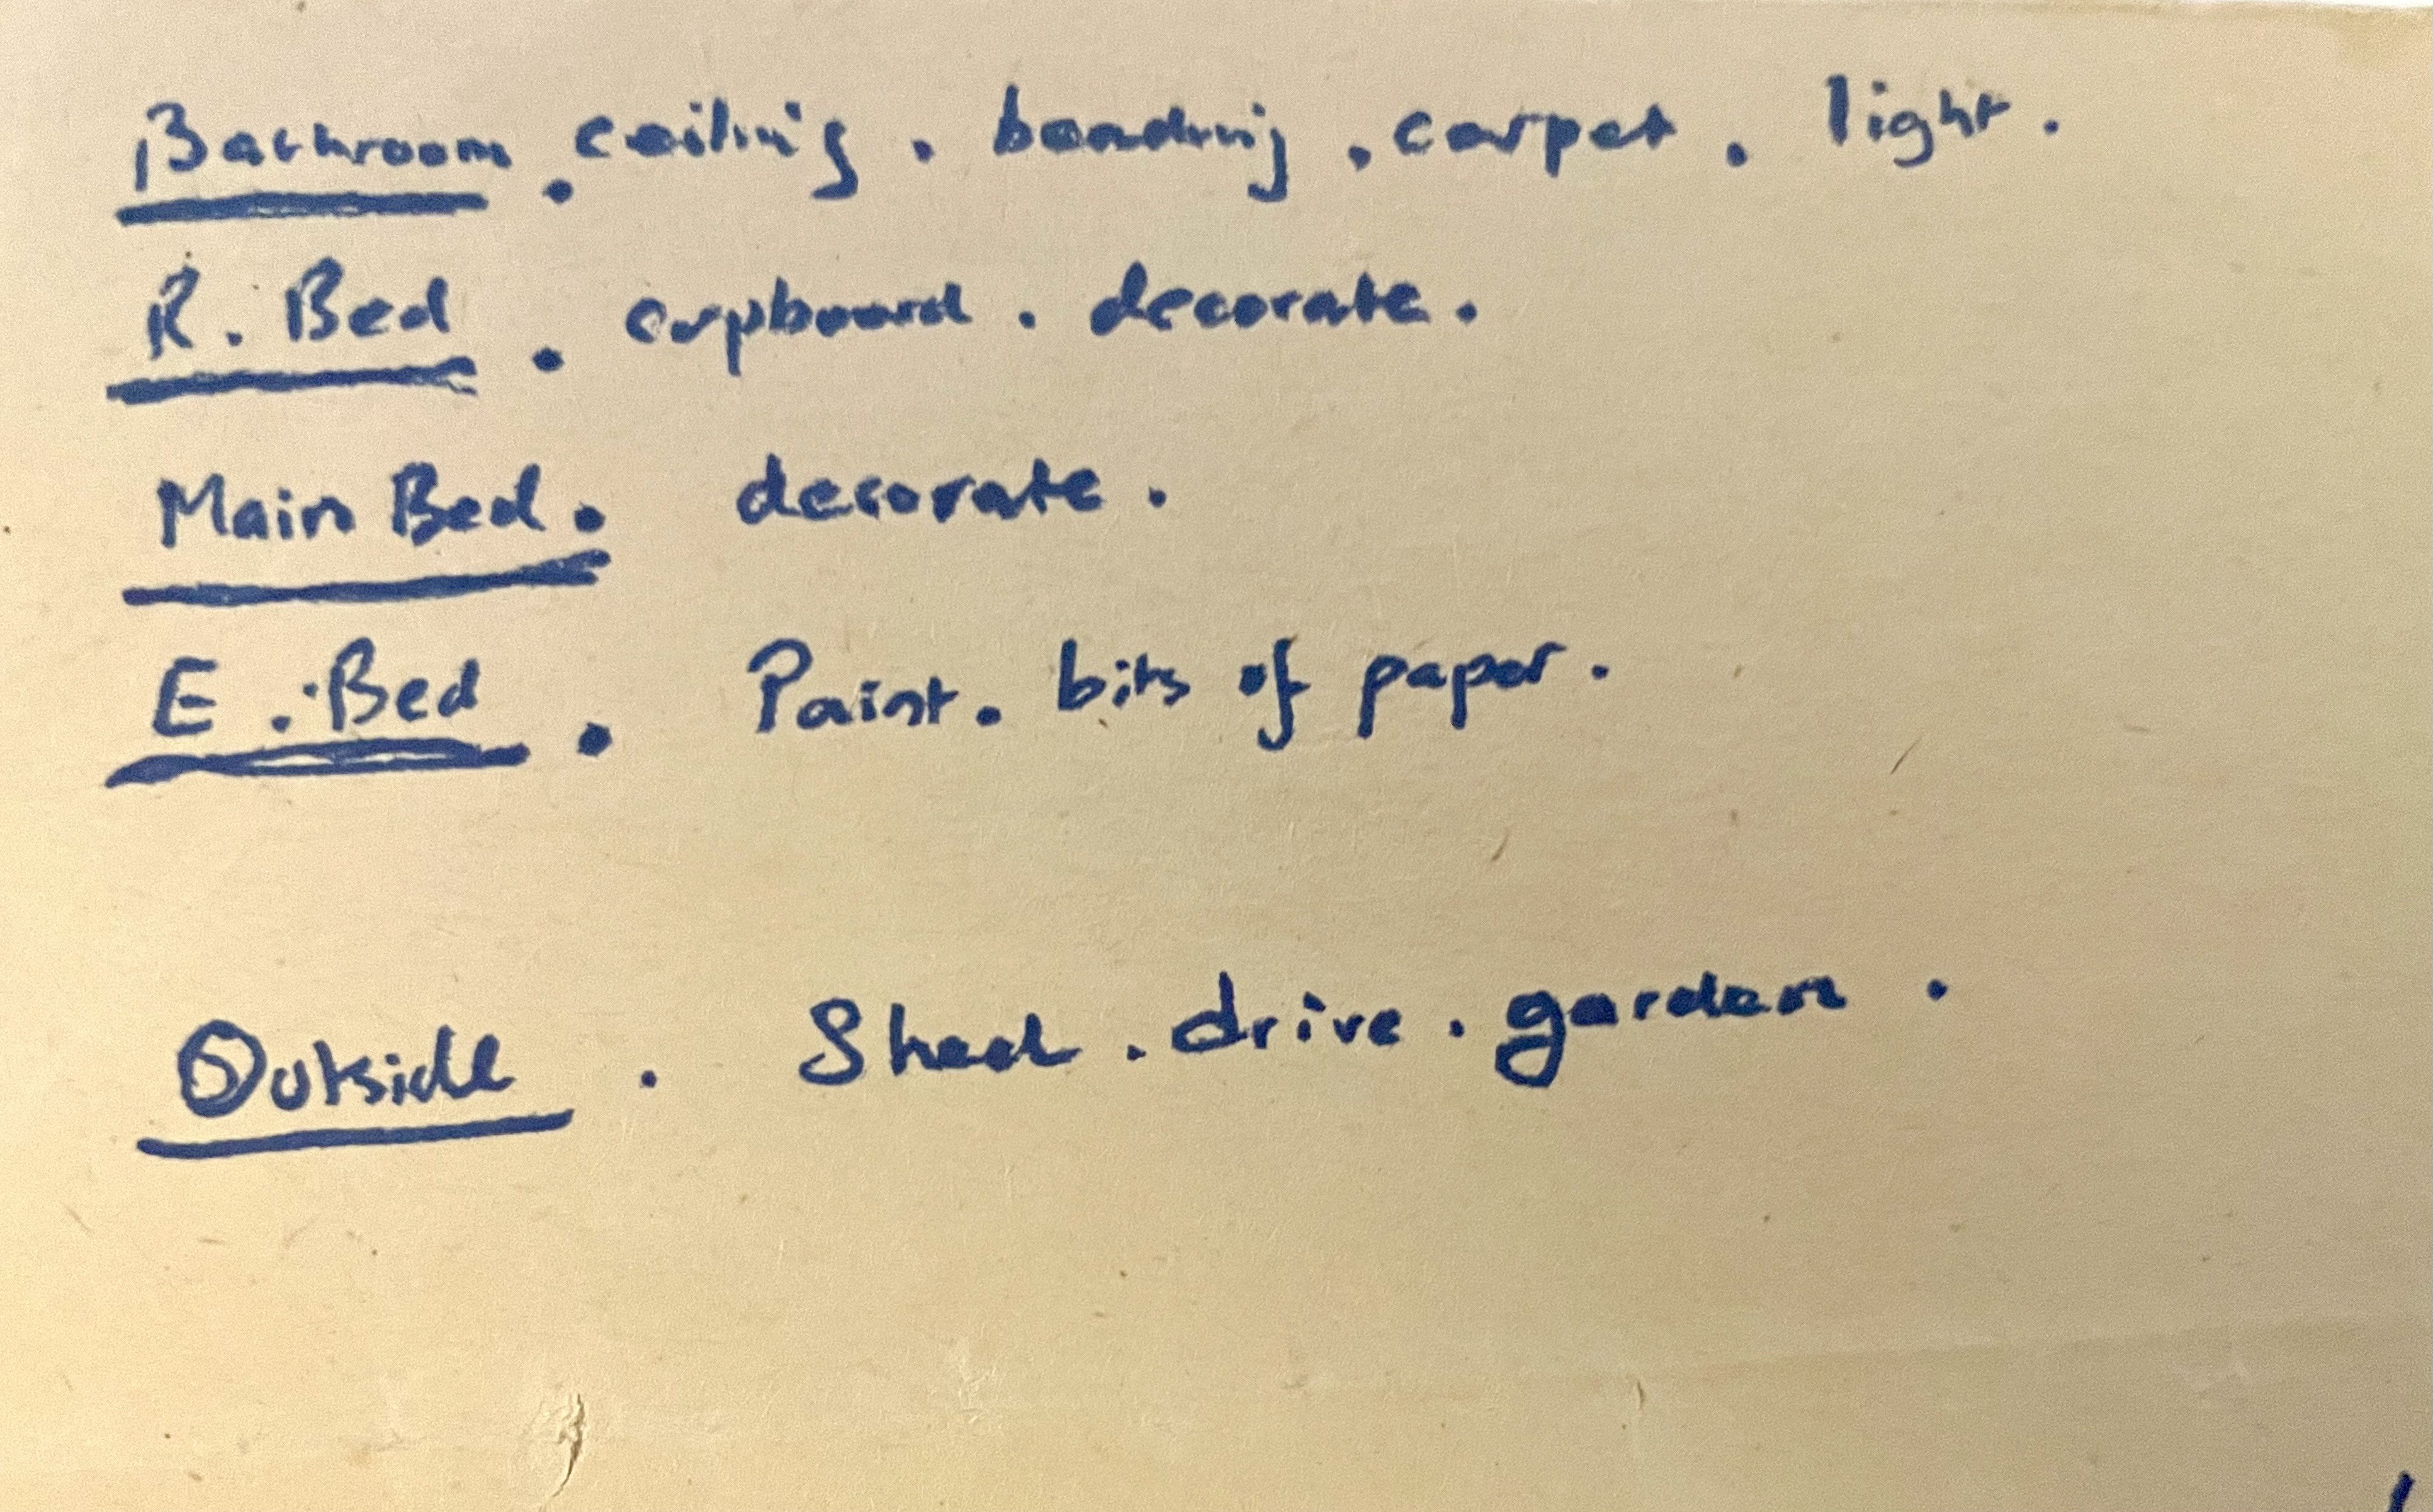 Bathroom . ceiling . beading . carpet . light .
R. Bed . cupboard . decorate .
Main Bed . decorate .
E. Bed . Paint . bits of paper .
Outside . Shed . drive . garden .